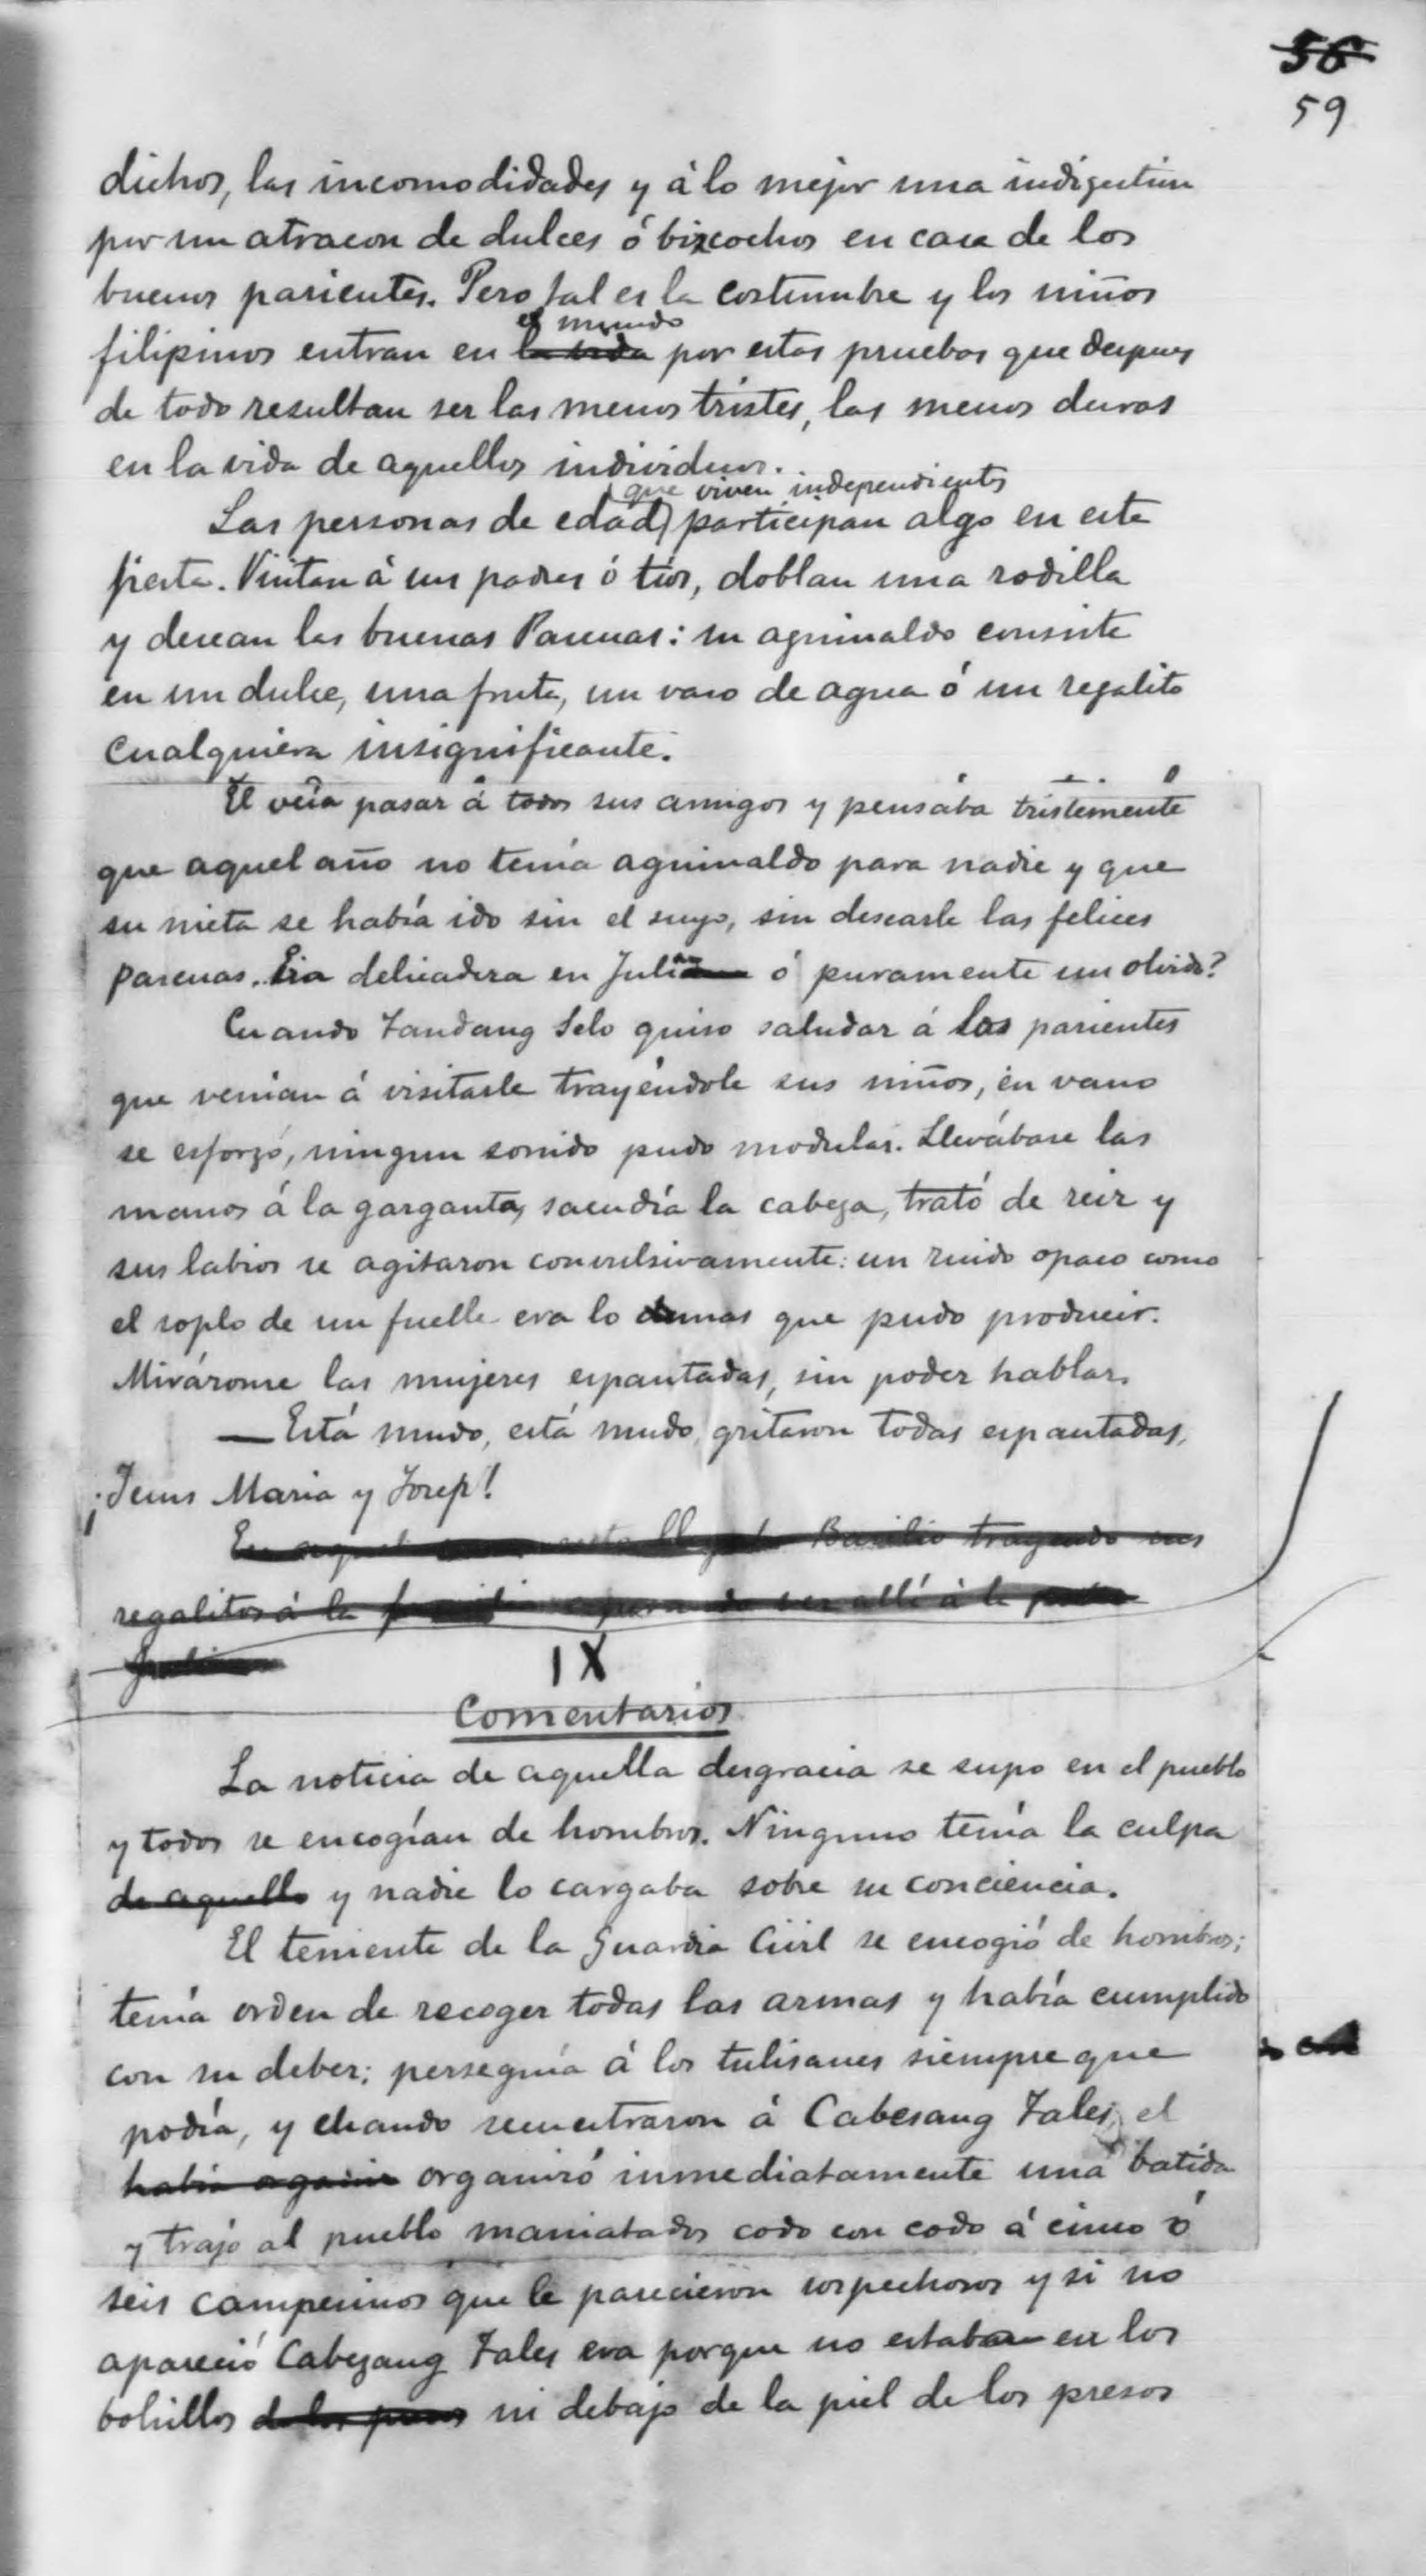 56
59
dichos, las incomodidades y á lo mejor una indigestion
por un atracon de dulces ó bizcochos en casa de los
buenos parientes. Pero tal es la costumbre y los niños
el mundo
filipinos entran en la vida por estas pruebas que despues
de todo resultan ser las menos tristes, las menos duras
en la vida de aquellos individuos.
que viven independientes
Las personas de edad participan algo en esta
fiesta. Visitan á sus padres ó tios, doblan una rodilla
y desean las buenas Pascuas: su aguinaldo consiste
en un dulce, una fruta, un vaso de agua ó un regalito
cualquiera insignificante.
El veía pasar á todos sus amigos y pensaba tristemente
que aquel año no tenía aguinaldo para nadie y que
su nieta se había ido sin el suyo, sin desearle las felices
pascuas. Era delicadeza en Juli ó puramente un olvido?
Cuando Tandang Selo quiso saludar á los parientes
que venían á visitarle trayéndole sus niños, en vano
se esforzó, ningun sonido pudo modular. Llevábase las
manos á la garganta, sacudía la cabeza, trató de reir y
sus labios se agitaron convulsivamente: un ruido opaco como
el soplo de un fuelle era lo demas que pudo producir.
Miráronse las mujeres espantadas, sin poder hablar.
— Está mudo, está mudo, gritaron todas espantadas,
¡Jesus Maria y Josep!
Basilio trayendo sus
regalitos á la allí á la
IX
Comentarios
La noticia de aquella desgracia se supo en el pueblo
y todos se encogían de hombros. Ninguno tenía la culpa
de aquello y nadie lo cargaba sobre su conciencia.
El teniente de la Guardia Civil se encogió de hombros;
tenía orden de recoger todas las armas y había cumplido
con su deber; perseguía á los tulisanes siempre que
podía, y cuando secuestraron á Cabesang Tales, el
había organizó inmediatamente una batida
y trajo al pueblo maniatados codo con codo á cinco ó
seis campesinos que le parecieron sospechosos y si no
apareció Cabezang Tales era porque no estaba en los
bolsillos de los presos ni debajo de la piel de los presos